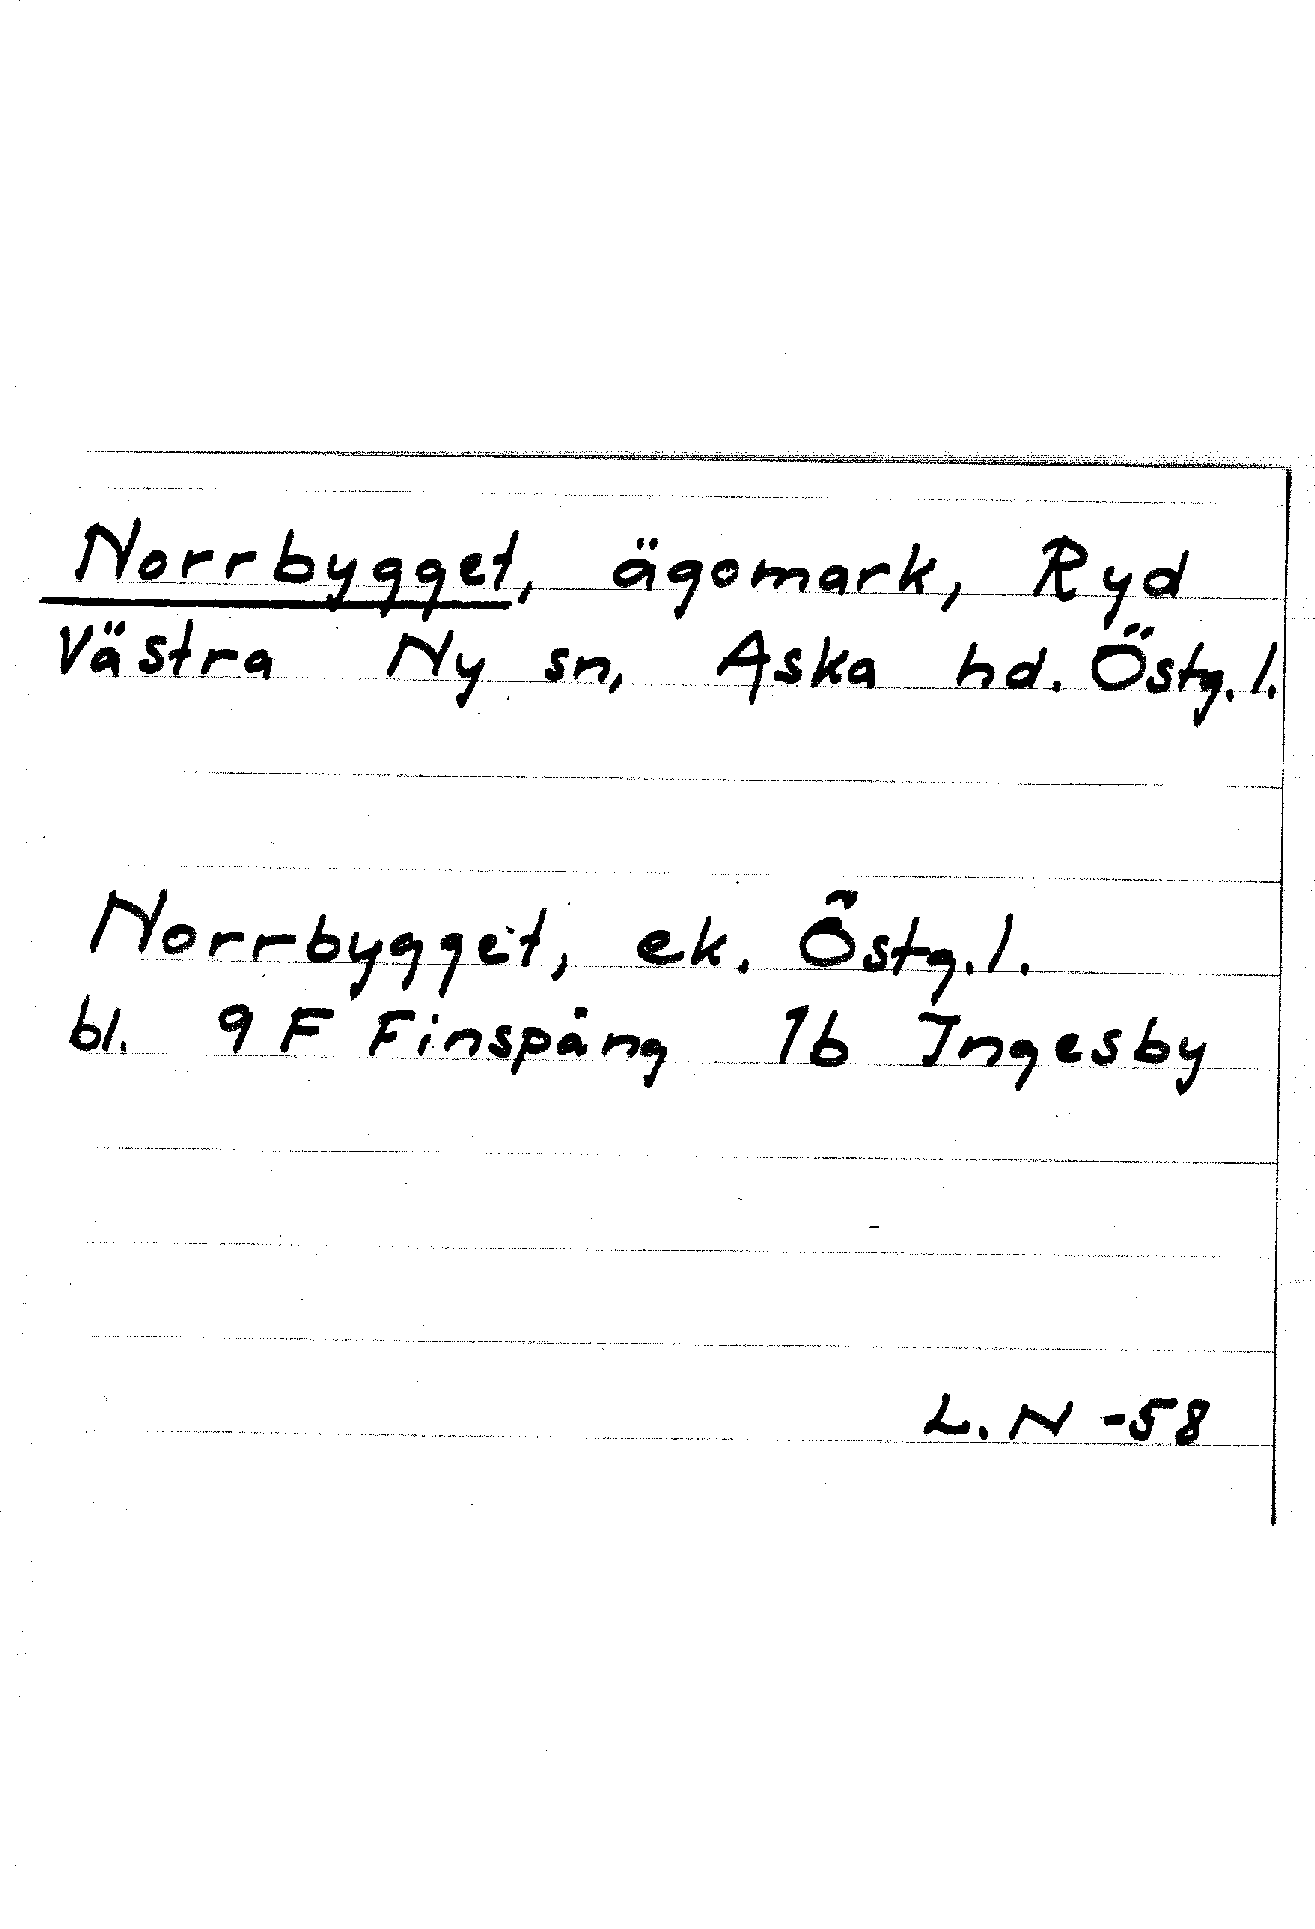 Norrbygget, ägomark, Ryd
Västra Ny sn, Aska hd. Östg. l.
Norrbygget, ek. Östg. l.
bl. 9 F Finspång 1b Ingesby
L. N -58